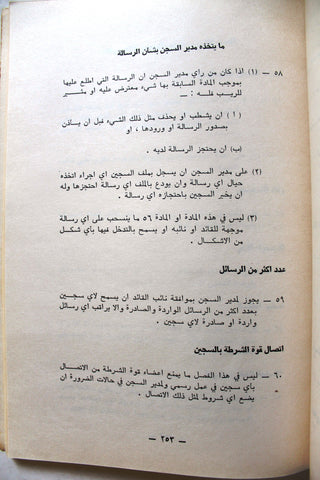 ما يتخذه مدير السجن بشأن الرسالة
٥٨ — (١) اذا كان من رأي مدير السجن ان الرسالة التي اطلع عليها
بموجب المادة السابقة بها شيء معترض عليه او مثير
للريب فله : —
( أ ) ان يشطب او يحذف مثل ذلك الشيء قبل ان يأذن
بصدور الرسالة او ورودها ، او
(ب) ان يحتجز الرسالة لديه .
(٢) على مدير السجن ان يسجل بملف السجين اي اجراء اتخذه
حيال اي رسالة وان يودع بالملف اي رسالة احتجزها وله
ان يخبر السجين باحتجازه اي رسالة .
(٣) ليس في هذه المادة او المادة ٥٦ ما ينسحب على اي رسالة
موجهة للقائد او نائبه او يسمح بالتدخل فيها بأي شكل
من الاشكال .
عدد اكثر من الرسائل
٥٩ — يجوز لمدير السجن بموافقة نائب القائد ان يسمح لاي سجين
بعدد اكثر من الرسائل الواردة والصادرة والا يراقب اي رسائل
واردة او صادرة لاي سجين .
اتصال قوة الشرطة بالسجين
٦٠ — ليس في هذا الفصل ما يمنع اعضاء قوة الشرطة من الاتصال
بأي سجين في عمل رسمي ولمدير السجن في حالات الضرورة ان
يضع اي شروط لمثل ذلك الاتصال .
— ٢٥٣ —